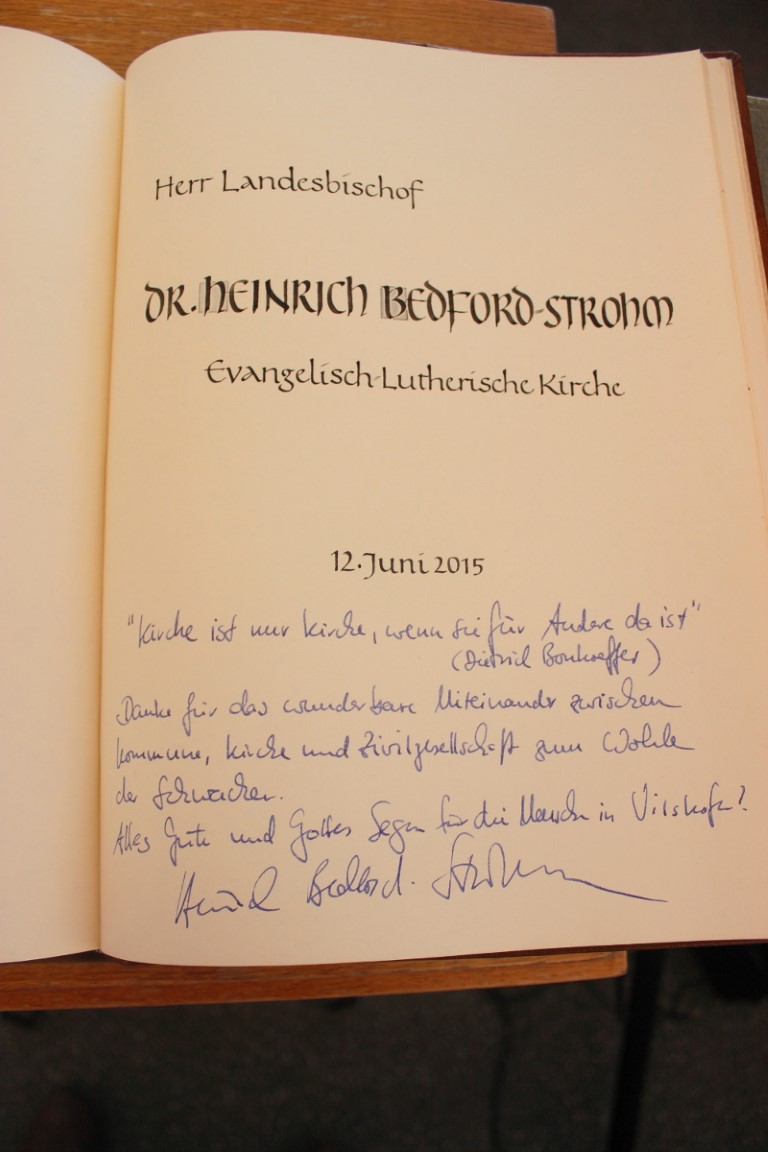 Herr Landesbischof
DR. HEINRICH BEDFORD-STROHM
Evangelisch-Lutherische Kirche
12. Juni 2015
"Kirche ist nur Kirche, wenn sie für Andere da ist"
(Dietrich Bonhoeffer)
Danke für das wunderbare Miteinander zwischen
Kommune, Kirche und Zivilgesellschaft zum Wohle
der Schwachen.
Alles Gute und Gottes Segen für die Menschen in Vilshofen!
Heinrich Bedford-Strohm